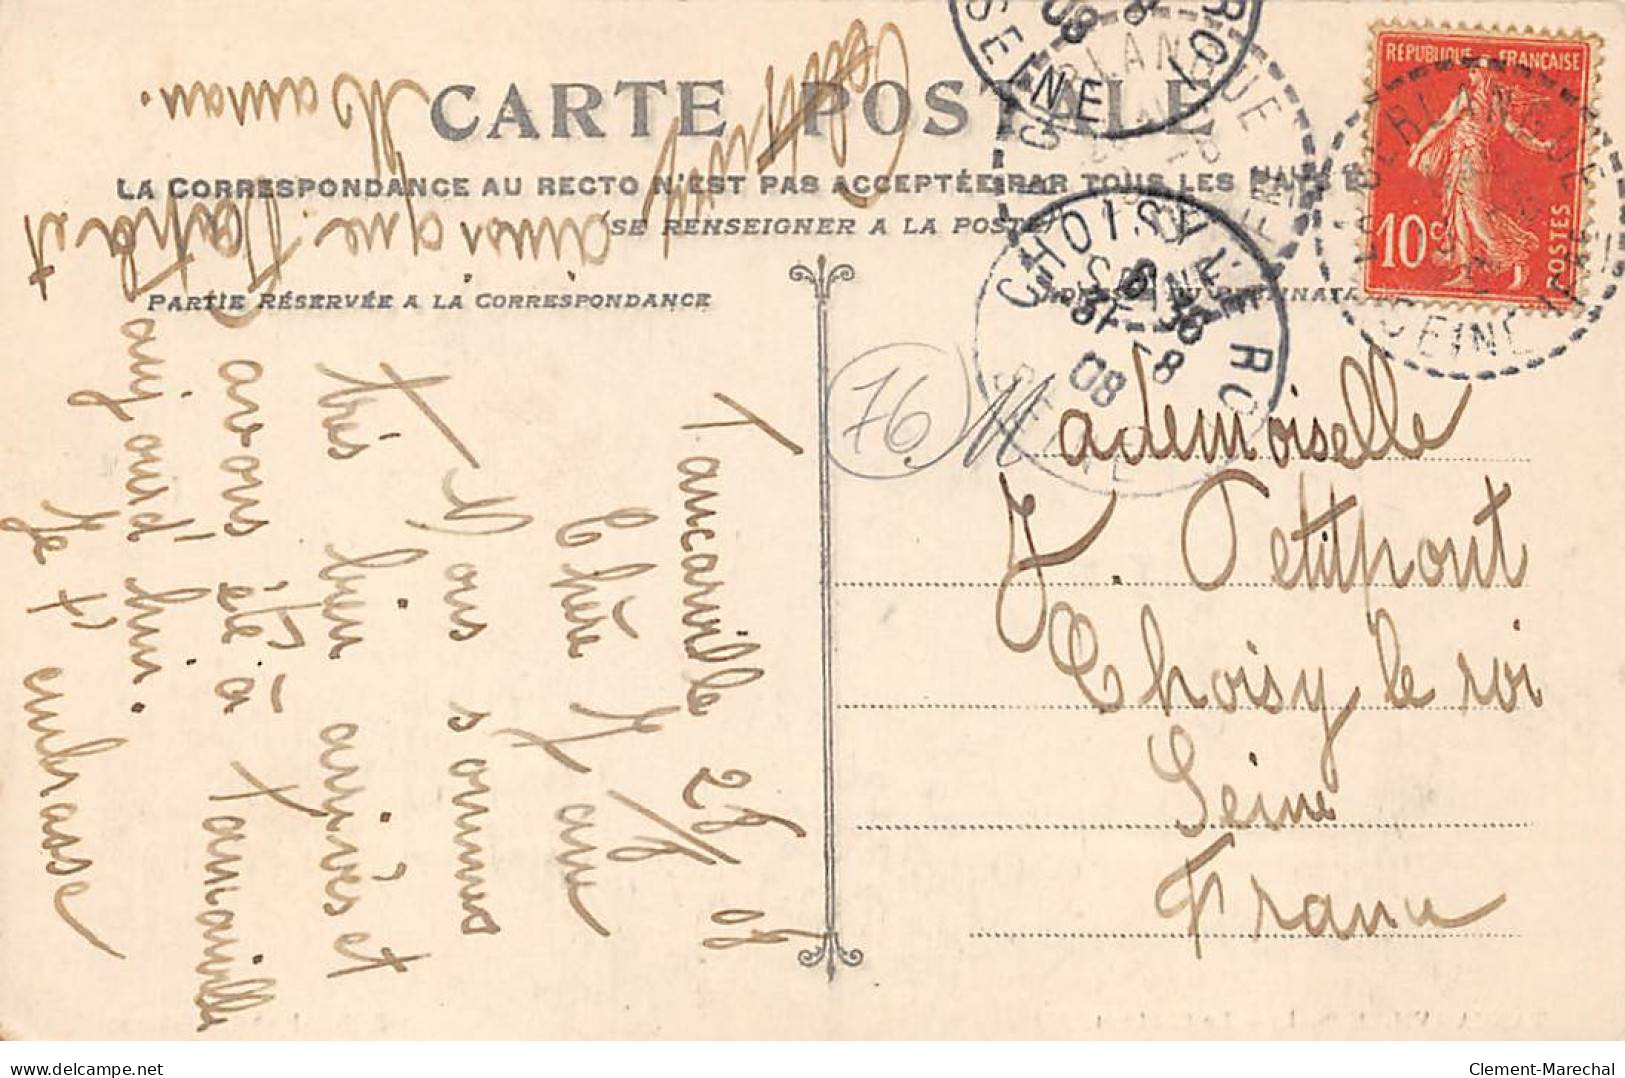 CARTE POSTALE
LA CORRESPONDANCE AU RECTO N'EST PAS ACCEPTÉE PAR TOUS LES
(SE RENSEIGNER A LA POSTE)
PARTIE RÉSERVÉE A LA CORRESPONDANCE
RÉPUBLIQUE FRANÇAISE
10c
POSTES
CHOISY LE ROI
SEINE
6 30
31 - 8
08
76
Mademoiselle
J. Petitpont
Choisy le roi
Seine
France
Tancarville 28/8 08
Chère J
Nous sommes
très bien arrivés et
avons été à Tancarville
aujourd'hui.
Je t'embrasse
ainsi que Papa et
Maman.
delcampe.net
Clement-Marechal